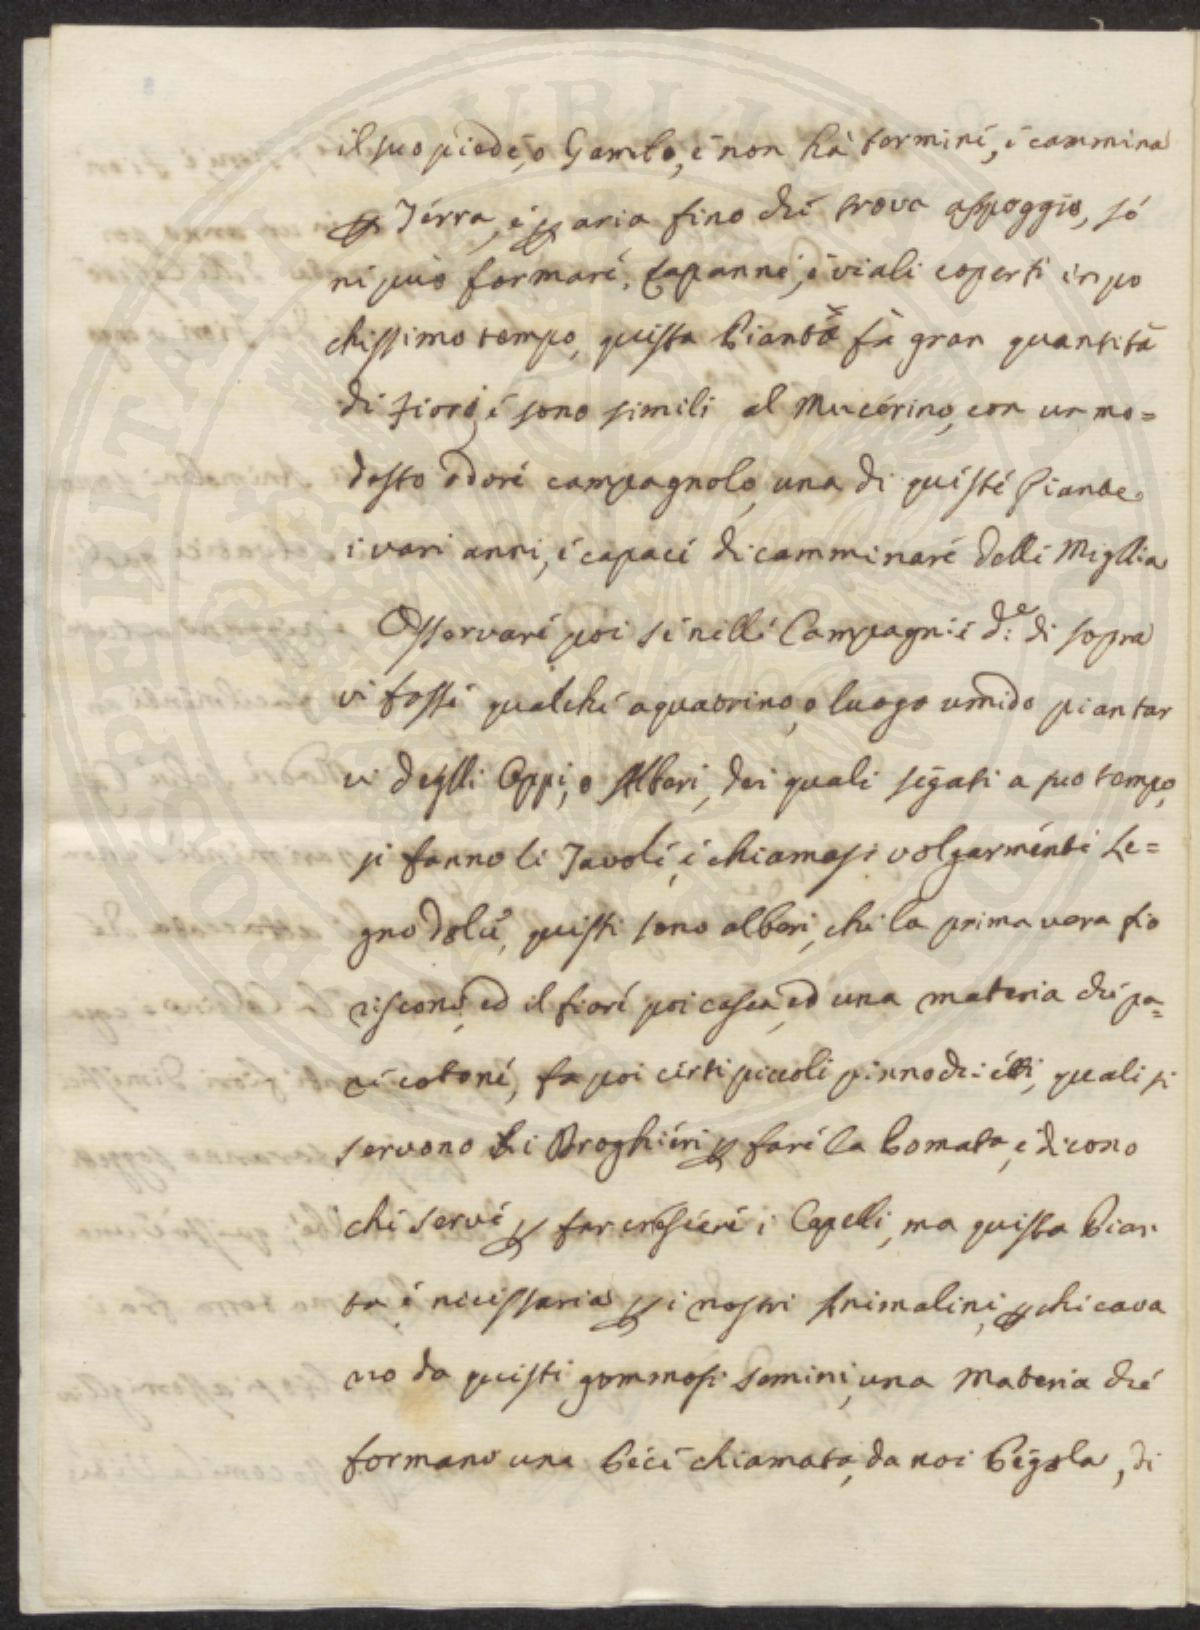 il suo piede, o Gambo, é non hà termine, é cammina
ꝑ Terra, é ꝑ aria fino ché trova appoggio, sé
né può formaré, Capanne, é viali coperti in po
chissimo tempo, questa Pianta fà gran quantità
di Fiori, é sono simili al Mucérino, con un mo=
desto odoré campagnolo, una di quésté Piante
i vari anni, é capacé di camminaré delle Miglia
Osservaré poi sé nellé Campagnié d.e di sopra
vi fossé qualché aquatrino, o luogo umido piantar
vi deglli Oppi, o Alberi, dei quali segati a suo tempo,
si fanno le Tavolé, é chiamasi volgarménte Le=
gno dolcé, questi sono alberi, che la prima vera fio
riscono, ed il fioré poi casca, ed una materia ché pa=
ré cotoné, fa poi cérti piccoli pinnochiétti, quali si
servono li Droghiéri ꝑ faré la Pomata, é dicono
ché servé ꝑ far crésceré i Capelli, ma questa Pian
ta é necessaria ꝑ i nostri Animalini, ꝑché cava
no da questi gommosi Semini, una Materia ché
formano una Pécé chiamata, da noi Pégola, di